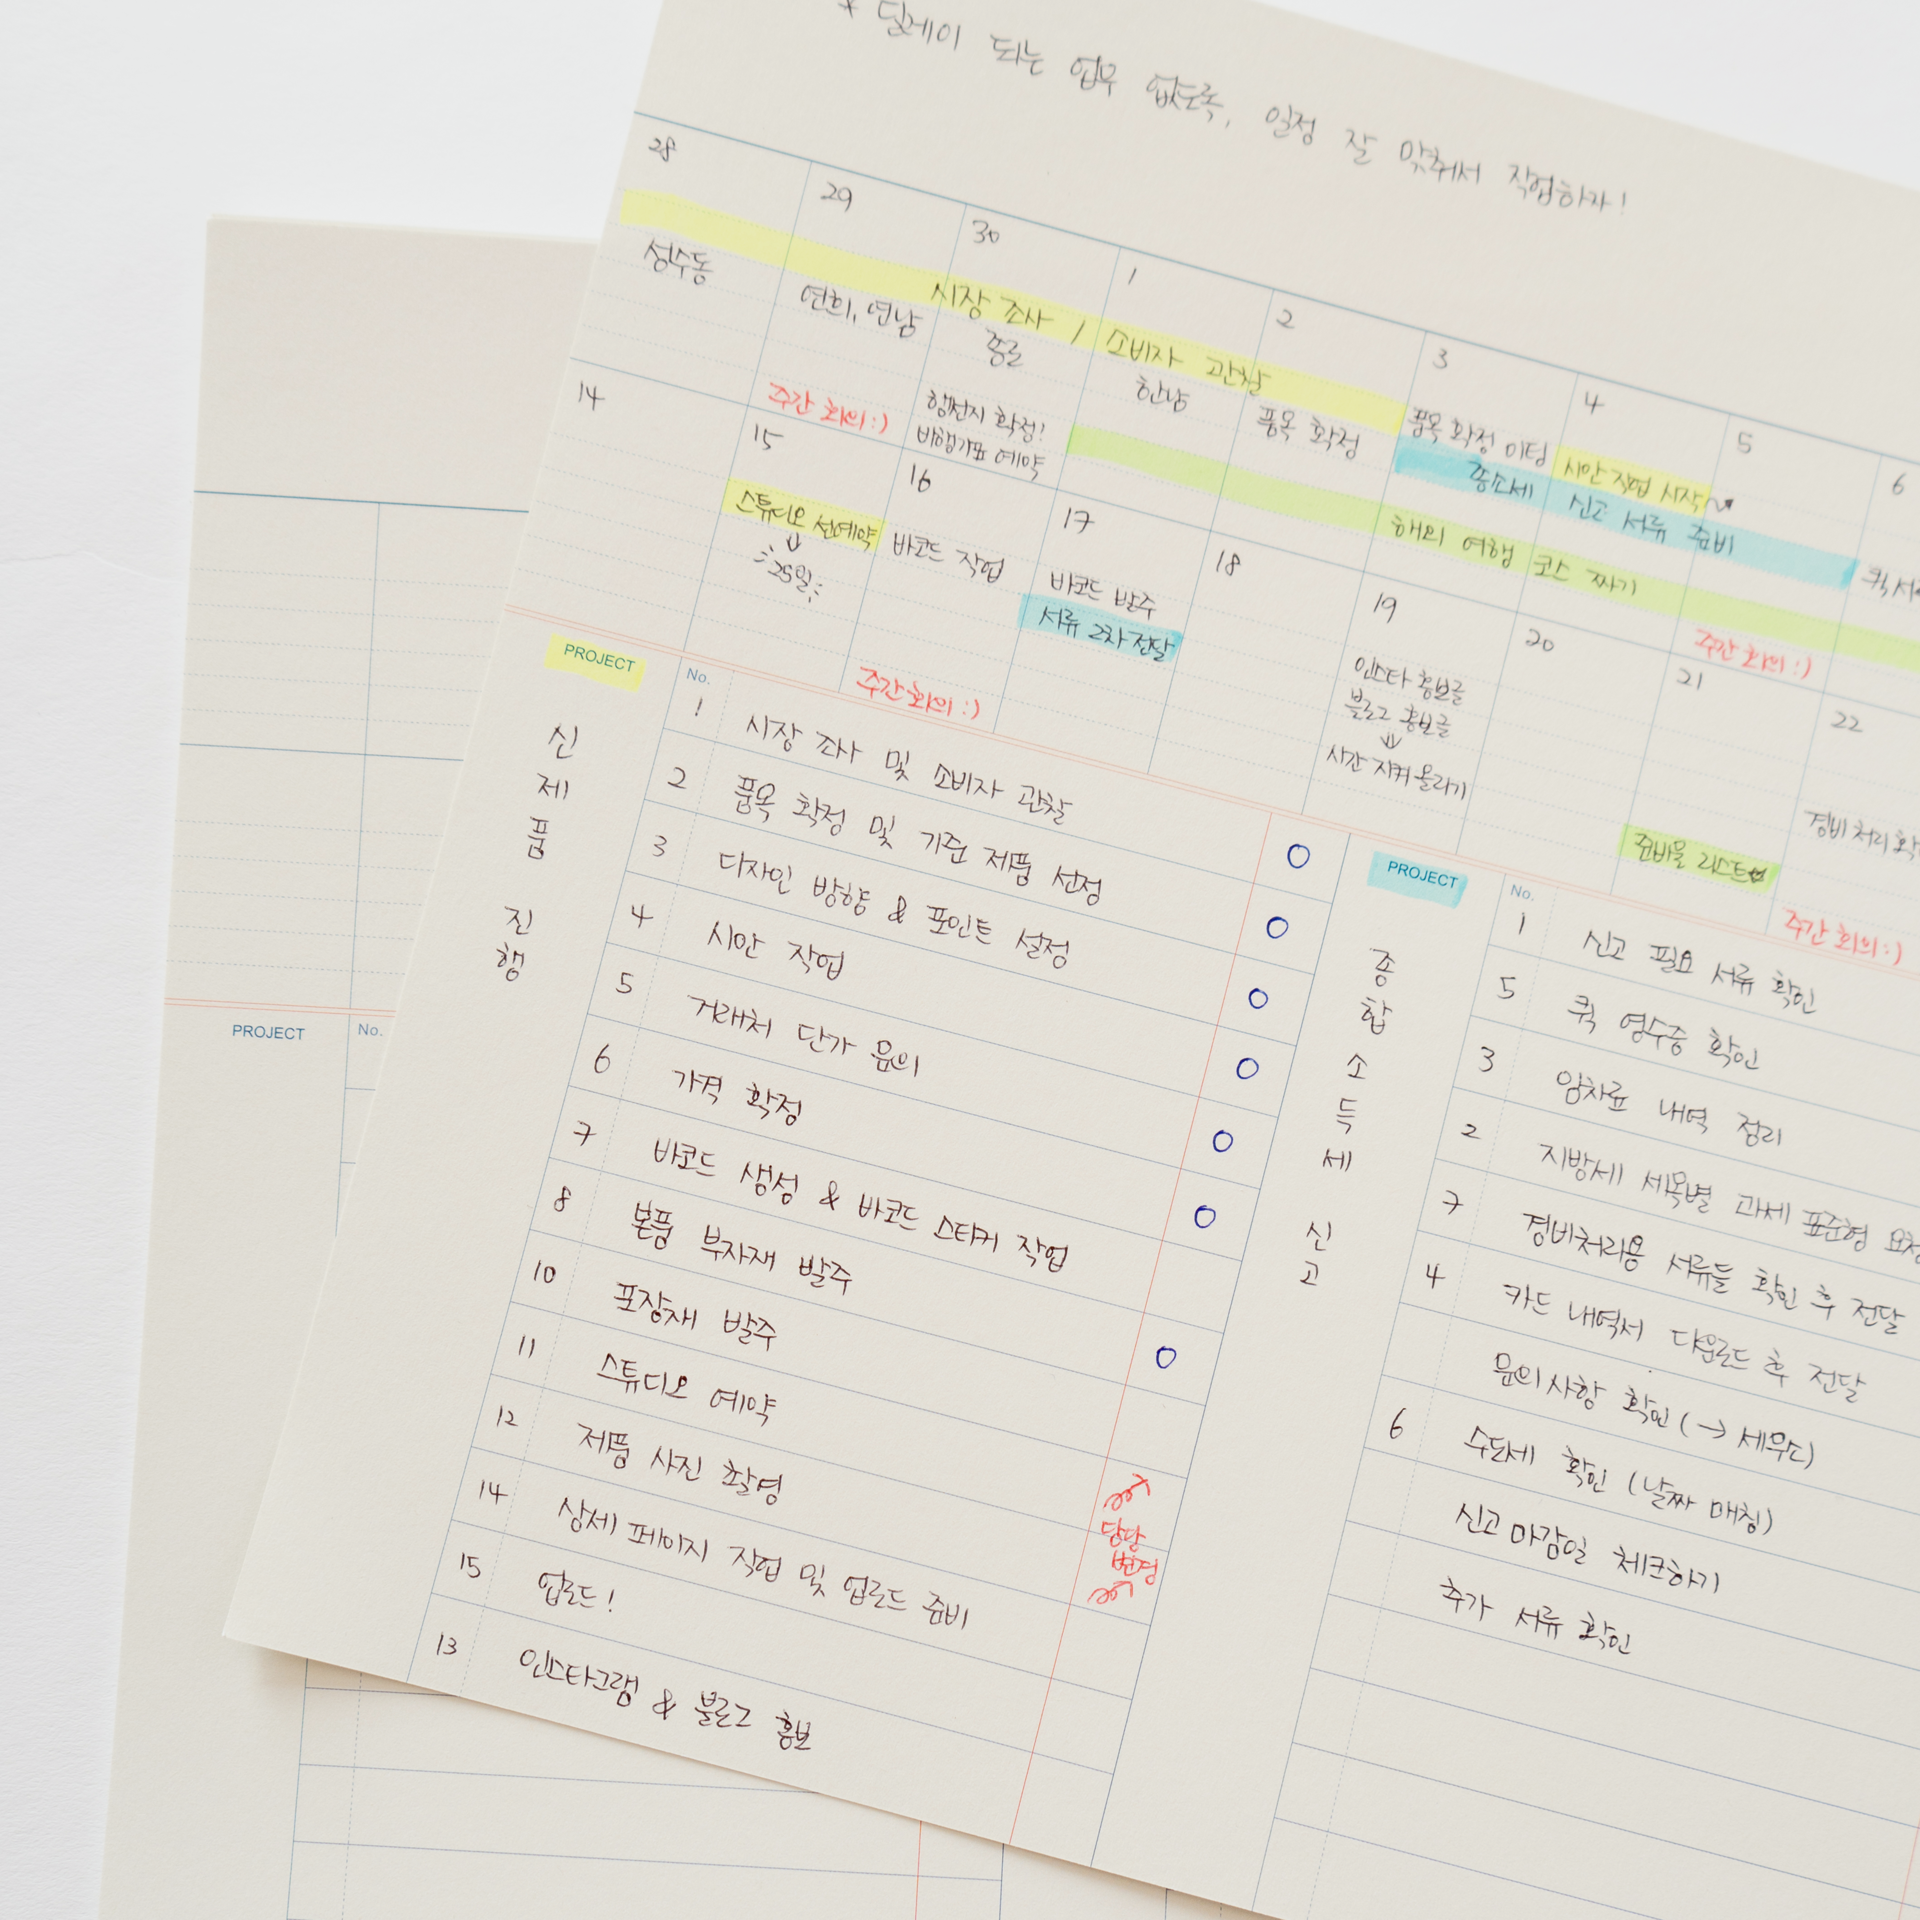 * 딜레이 되는 업무 없도록, 일정 잘 맞춰서 작업하자!
28
29
30
1
2
3
4
5
6
시장 조사 / 소비자 관찰
성수동
연희, 연남
종로
한남
품목 확정
품목 확정 미팅
시안 작업 시작
주간 회의 :)
행선지 확정!
비행기표 예약
종소세 신고 서류 준비
해외 여행 코스 짜기
주간 회의 :)
14
15
16
17
18
19
20
21
22
스튜디오 선예약
25일
바코드 작업
바코드 발주
서류 2차 전달
인스타 홍보글
블로그 홍보글
시간 지켜 올리기
준비물 리스트
경비 처리
주간 회의 :)
주간 회의 :)
PROJECT
No.
신제품 진행
1 시장 조사 및 소비자 관찰 O
2 품목 확정 및 기준 제품 선정 O
3 디자인 방향 & 포인트 설정 O
4 시안 작업 O
5 거래처 단가 문의 O
6 가격 확정 O
7 바코드 생성 & 바코드 스티커 작업
8 본품 부자재 발주 O
10 포장재 발주
11 스튜디오 예약
12 제품 사진 촬영
담당
변경
14 상세 페이지 작업 및 업로드 준비
15 업로드!
13 인스타그램 & 블로그 홍보
PROJECT
No.
종합 소득세 신고
1 신고 필요 서류 확인
5 퀵 영수증 확인
3 임차료 내역 정리
2 지방세 세목별 과세 표준형
7 경비처리용 서류들 확인 후 전달
4 카드 내역서 다운로드 후 전달
문의사항 확인 (→ 세무도)
6 수도세 확인 (날짜 매칭)
신고 마감일 체크하기
추가 서류 확인
PROJECT
No.